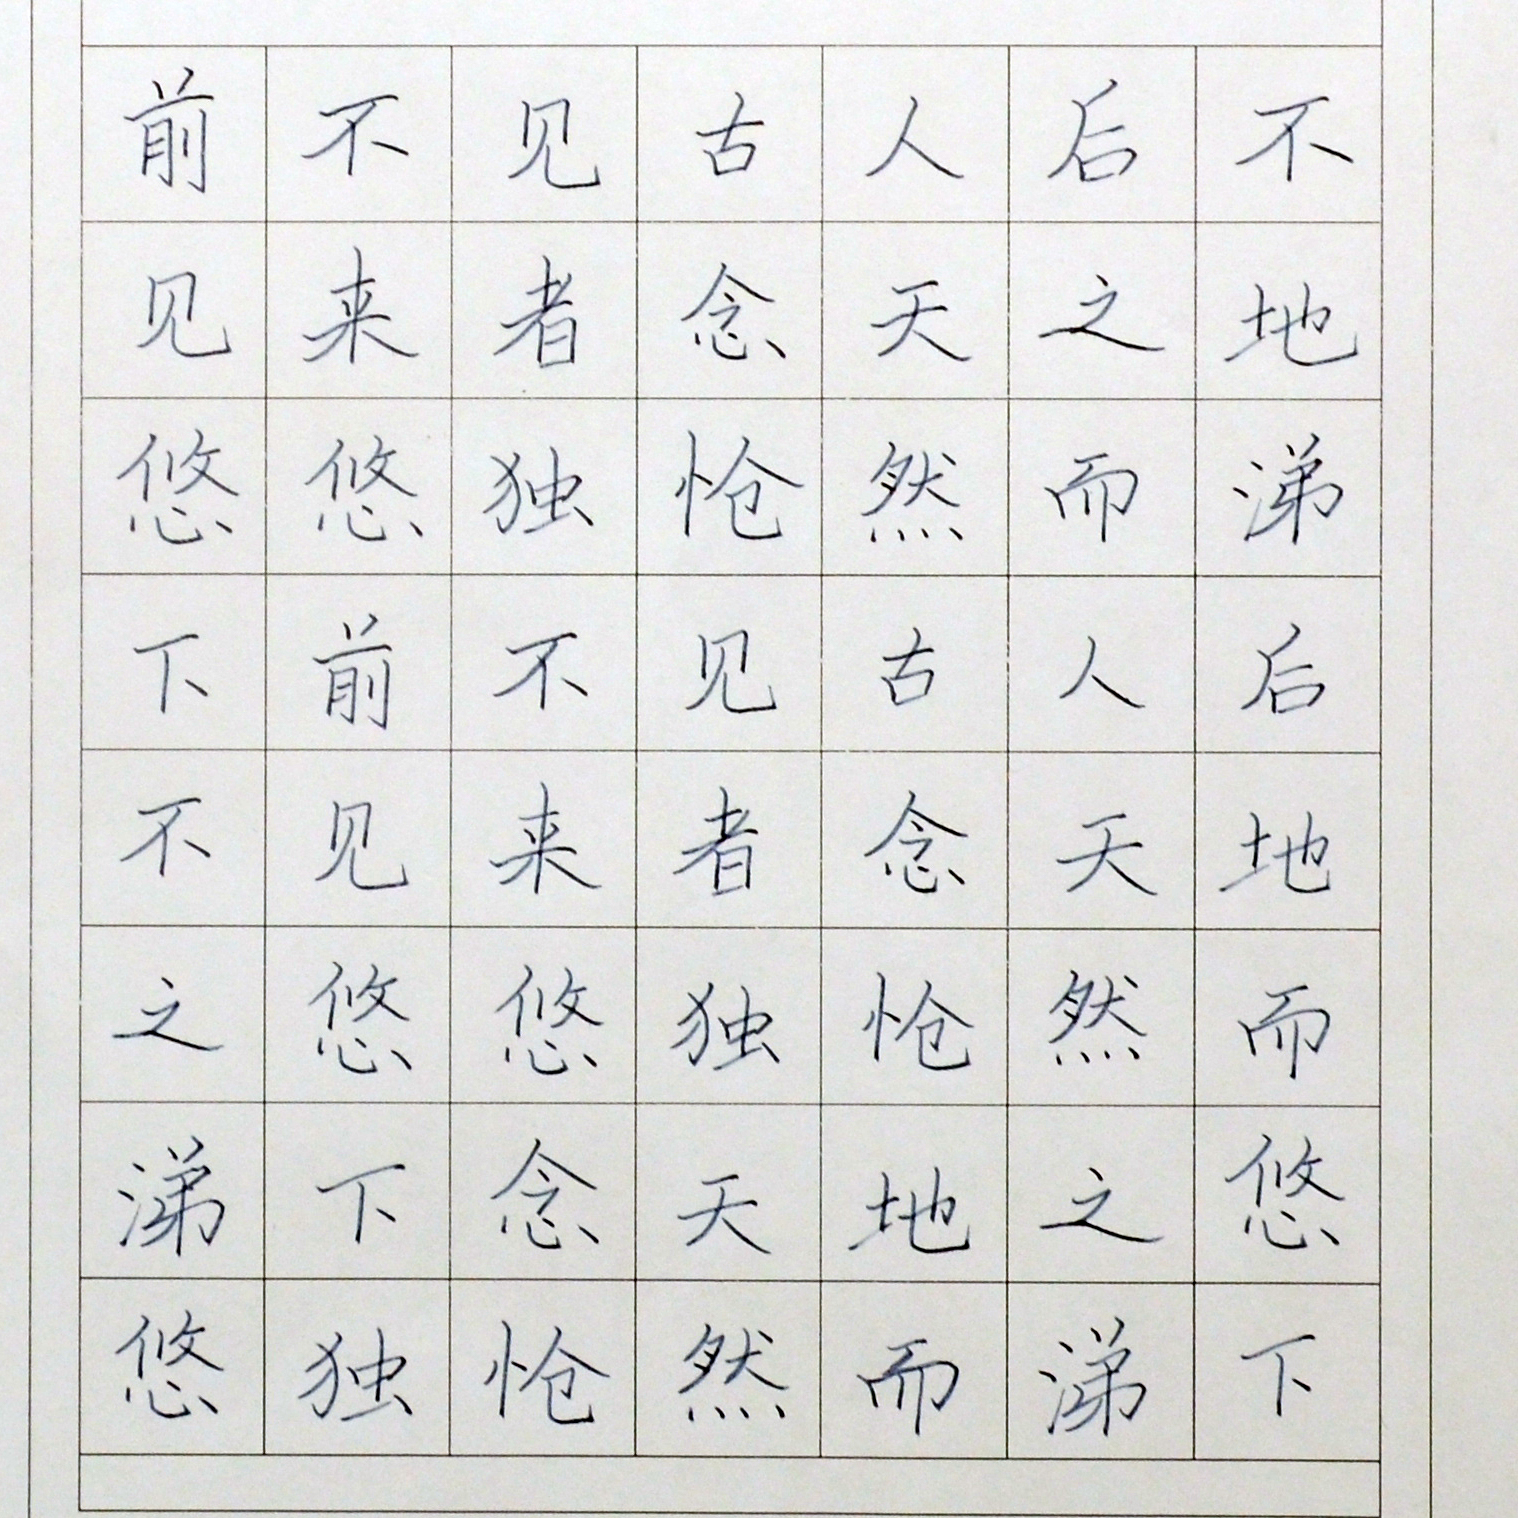 前不见古人后不
见来者念天之地
悠悠独怆然而涕
下前不见古人后
不见来者念天地
之悠悠独怆然而
涕下念天地之悠
悠独怆然而涕下